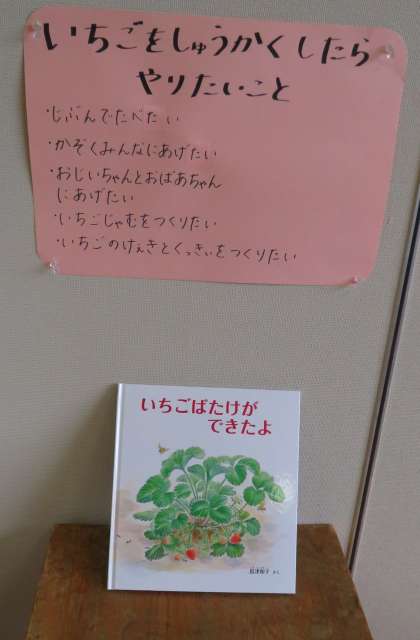 いちごをしゅうかくしたら
やりたいこと
・じぶんでたべたい
・かぞくみんなにあげたい
・おじいちゃんとおばあちゃん
にあげたい
・いちごじゃむをつくりたい
・いちごのけぇきとくっきぃをつくりたい
いちごばたけが
できたよ